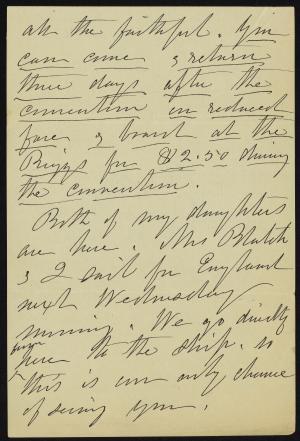 all the faithful. You
can come & return
three days after the
convention on reduced
fare & board at the
Riggs for $2.50 during
the convention.
Both of my daughters
are here. Mrs Blatch
& I sail for England
next Wednesday
morning. We go directly
from here to the ship. so
this is our only chance
of seeing you.